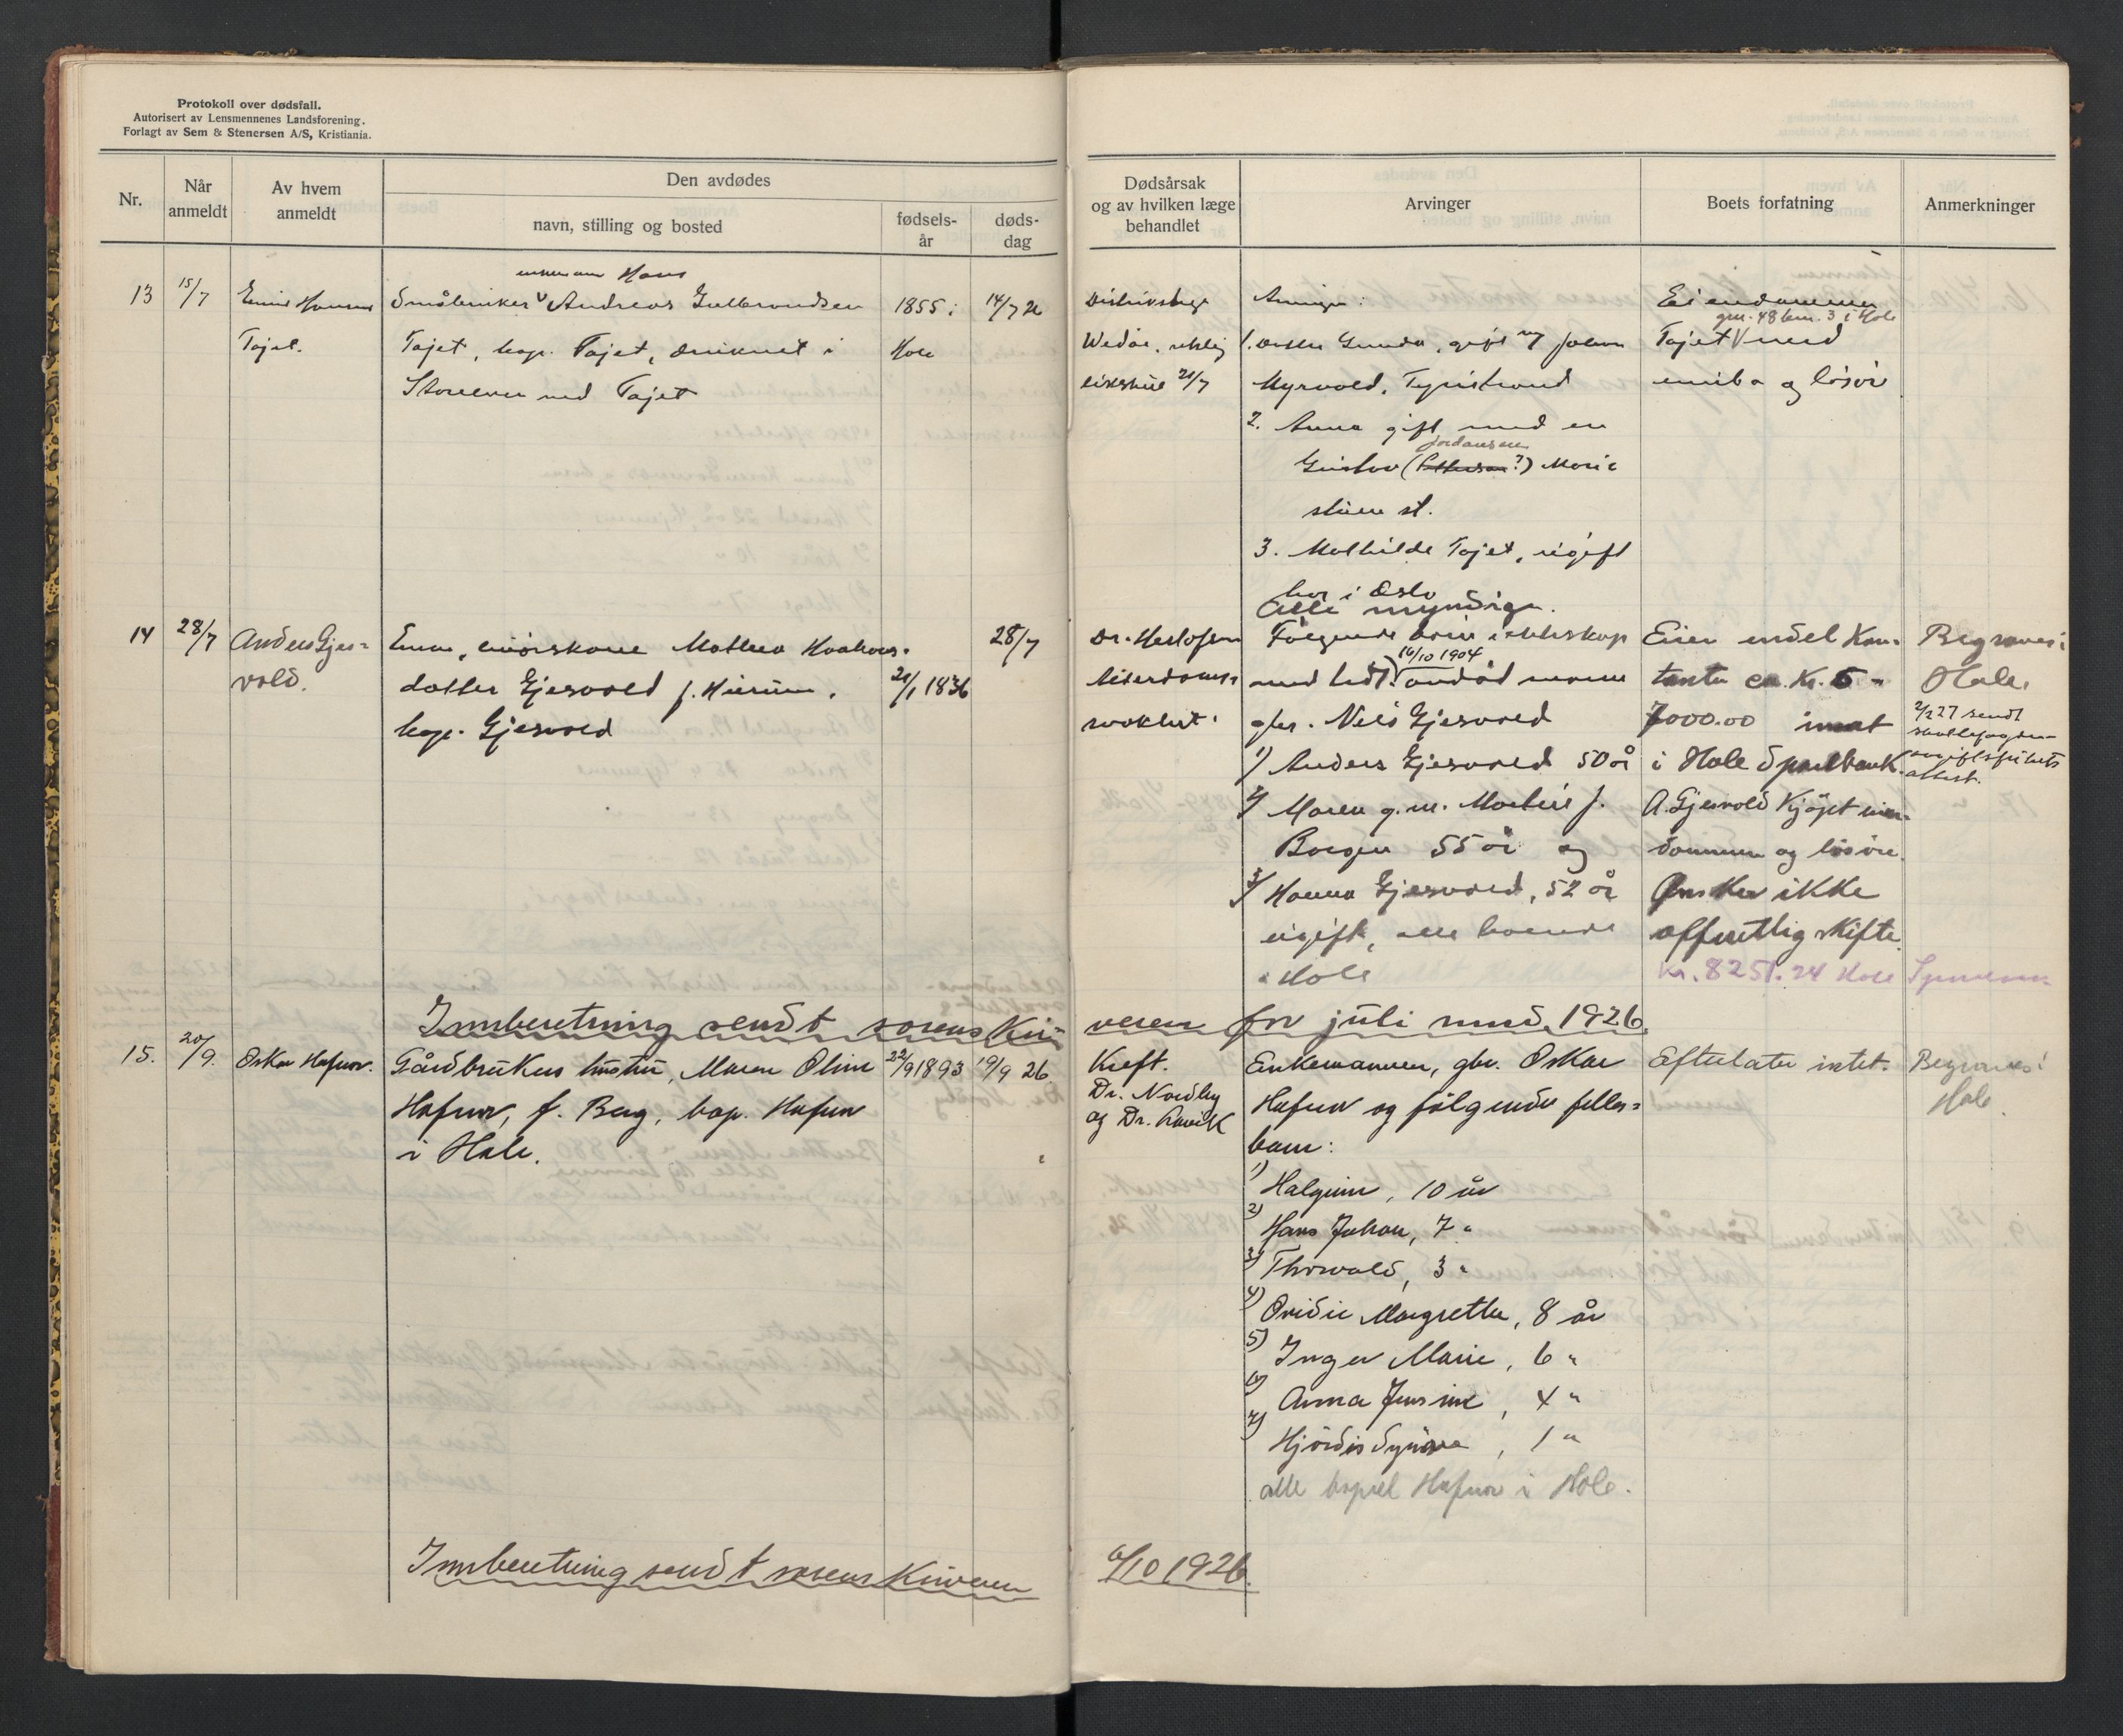 Protokoll over dødsfall.
Autorisert av Lensmennenes Landsforening.
Forlagt av Sem & Stenersen A/S, Kristiania.
Nr.
Når anmeldt
Av hvem anmeldt
Den avdødes
navn, stilling og bosted
fødsels-år
døds-dag
Dødsårsak og av hvilken læge behandlet
Arvinger
Boets forfatning
Anmerkninger
13
15/7
Tajet.
enkemann Hans
Småbruker Andreas Gulbrandsen
Tajet, bop. Tajet, druknet i
ved Tajet
1855 i
Hole
14/7 26
Distriktslæge
21/7
Arvinger:
1. Datter Gunda, gift m/ Johan
Myrvold, Tyristrand
2. Anna gift med en
Jordansen
Gustav (Pettersen?) Marie
stuen st.
3. Mathilde Tajet, ugift
bor i Oslo
Alle myndige.
Eiendommen
gnr. 48 bnr. 3 i Hole
Tajet med
innbo og løsøre
14
28/7
Anders Gjes-
vold.
Enke, Mathea
datter Gjesvold f.
bop. Gjesvold
21/1 1836
28/7
Alderdoms-
svakhet.
Følgende barn i ekteskap
16/10 1904
med tidl. avdød mann
gbr. Nils Gjesvold
1) Anders Gjesvold 50 år
2) Maren g.m. Martin J.
Borgen 55 år og
3) Hanna Gjesvold, 52 år
ugift, alle boende
i Hole
Eier endel kon-
tanter ca. kr. 6-
7000.00 innsat
i Hole Sparebank.
A. Gjesvold kjøpt eien-
dommen og løsøre.
Ønsker ikke
offentlig skifte.
kr. 8251.24 Hole Sparebank
Begraves i
Hole.
2/2 27 sendt
skattefogden
avgiftsfrihets
attest.
Innberetning sendt sorenskri-
veren for juli mnd. 1926.
15.
20/9.
Oskar Hafnor.
Gårdbrukers hustru, Maren Oline
Hafnor, f. Berg, bop. Hafnor
i Hole.
22/9 1893
19/9 26
Kreft.
Dr. Nordby
og Dr.
Enkemannen, gbr. Oskar
Hafnor og følgende felles-
barn:
1) Halgrim, 10 år
2) Hans Johan, 7 "
3) Thorvald, 3 "
4) Ovidie Margrethe, 8 år
5) Inger Marie, 6 "
6) Anna Jensine, 4 "
7) Hjördis Synöve, 1 "
alle bopæl Hafnor i Hole.
Efterlater intet.
Begraves i
Hole.
Innberetning sendt sorenskriveren
6/10 1926.